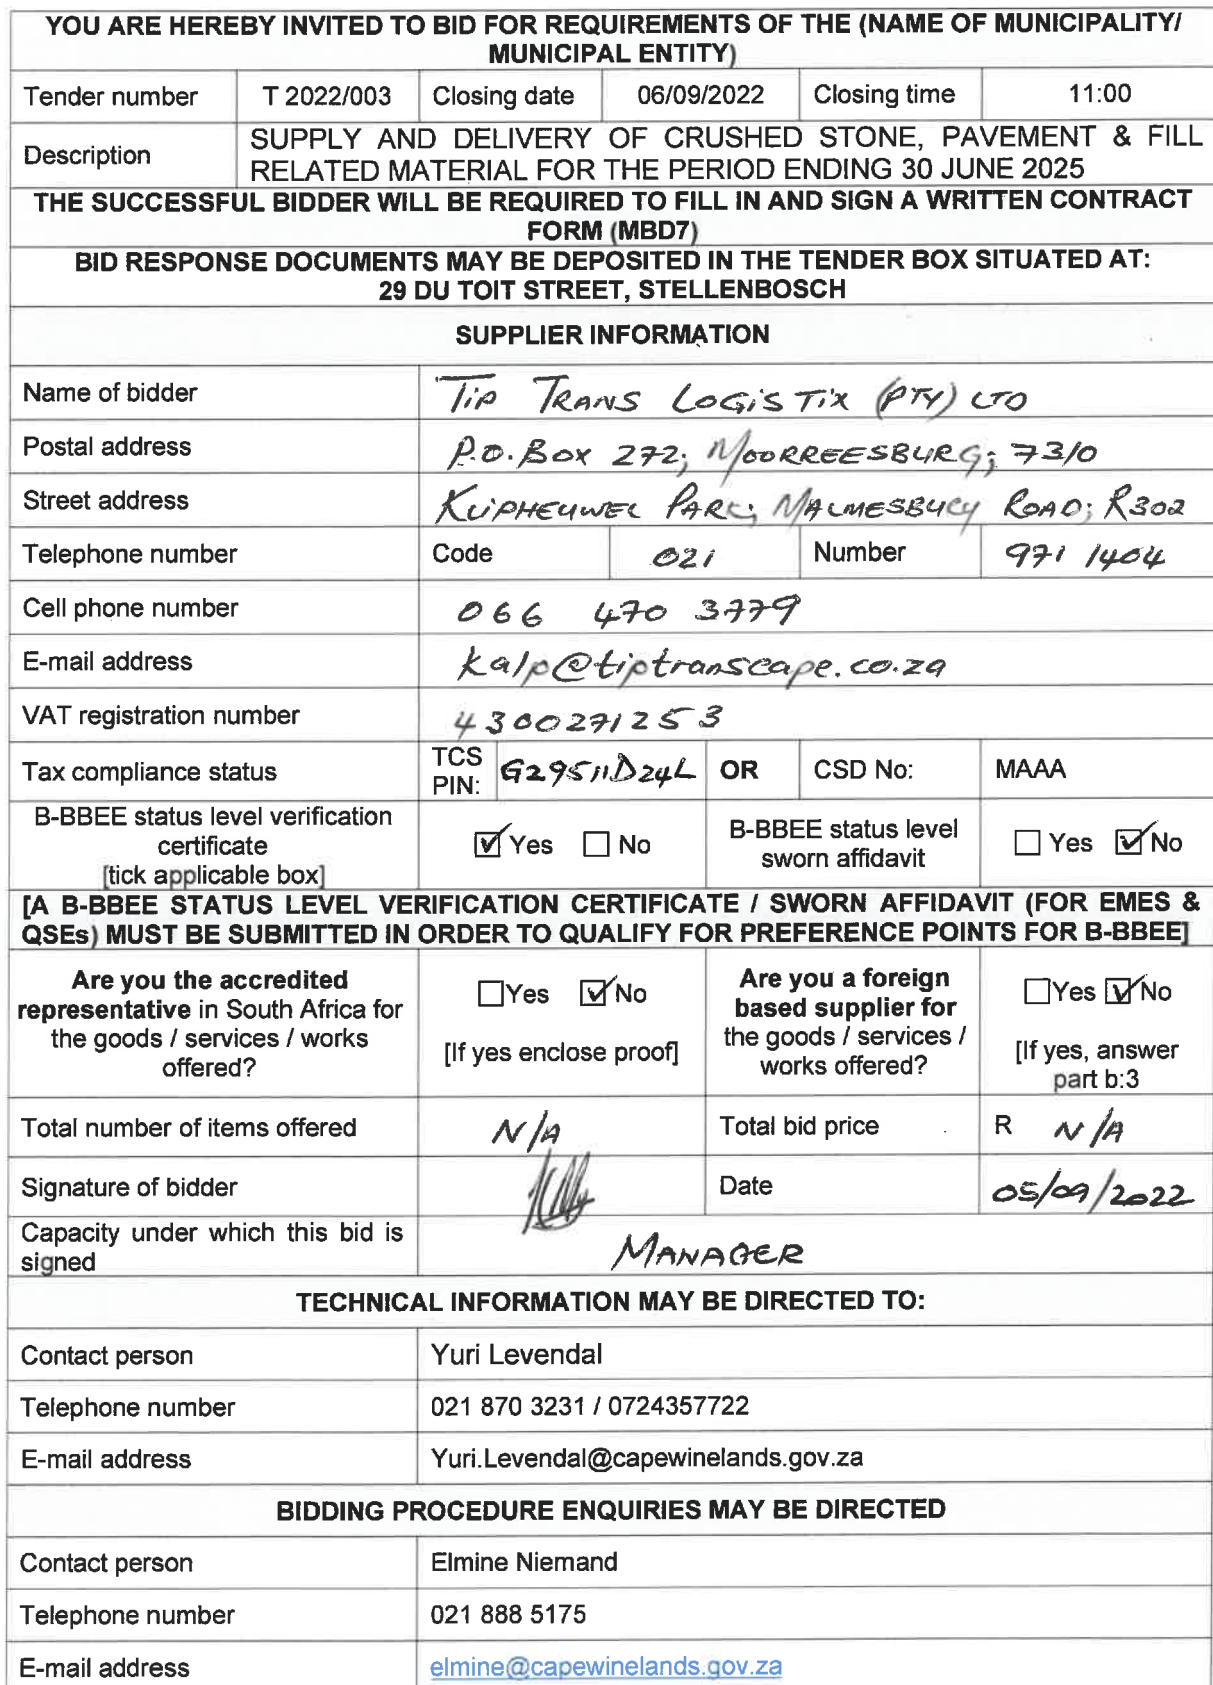 YOU ARE HEREBY INVITED TO BID FOR REQUIREMENTS OF THE (NAME OF MUNICIPALITY/
MUNICIPAL ENTITY)
Tender number T 2022/003 Closing date 06/09/2022 Closing time 11:00
Description SUPPLY AND DELIVERY OF CRUSHED STONE, PAVEMENT & FILL
RELATED MATERIAL FOR THE PERIOD ENDING 30 JUNE 2025
THE SUCCESSFUL BIDDER WILL BE REQUIRED TO FILL IN AND SIGN A WRITTEN CONTRACT
FORM (MBD7)
BID RESPONSE DOCUMENTS MAY BE DEPOSITED IN THE TENDER BOX SITUATED AT:
29 DU TOIT STREET, STELLENBOSCH
SUPPLIER INFORMATION
Name of bidder Tip TRANS LOGISTIX (PTY) LTD
Postal address P.O. Box 272; MOORREESBURG; 7310
Street address KLIPHEUWEL PARK; MALMESBURY ROAD; R302
Telephone number Code 021 Number 971 1404
Cell phone number 066 470 3779
E-mail address kalp@tiptranscape.co.za
VAT registration number 4300271253
Tax compliance status TCS PIN: G29511D24L OR CSD No: MAAA
B-BBEE status level verification
certificate
[tick applicable box]
Yes No
B-BBEE status level
sworn affidavit
Yes No
[A B-BBEE STATUS LEVEL VERIFICATION CERTIFICATE / SWORN AFFIDAVIT (FOR EMES &
QSEs) MUST BE SUBMITTED IN ORDER TO QUALIFY FOR PREFERENCE POINTS FOR B-BBEE]
Are you the accredited
representative in South Africa for
the goods / services / works
offered?
Yes No
[If yes enclose proof]
Are you a foreign
based supplier for
the goods / services /
works offered?
Yes No
[If yes, answer
part b:3
Total number of items offered N/A Total bid price R N/A
Signature of bidder Date 05/09/2022
Capacity under which this bid is
signed
MANAGER
TECHNICAL INFORMATION MAY BE DIRECTED TO:
Contact person Yuri Levendal
Telephone number 021 870 3231 / 0724357722
E-mail address Yuri.Levendal@capewinelands.gov.za
BIDDING PROCEDURE ENQUIRIES MAY BE DIRECTED
Contact person Elmine Niemand
Telephone number 021 888 5175
E-mail address elmine@capewinelands.gov.za